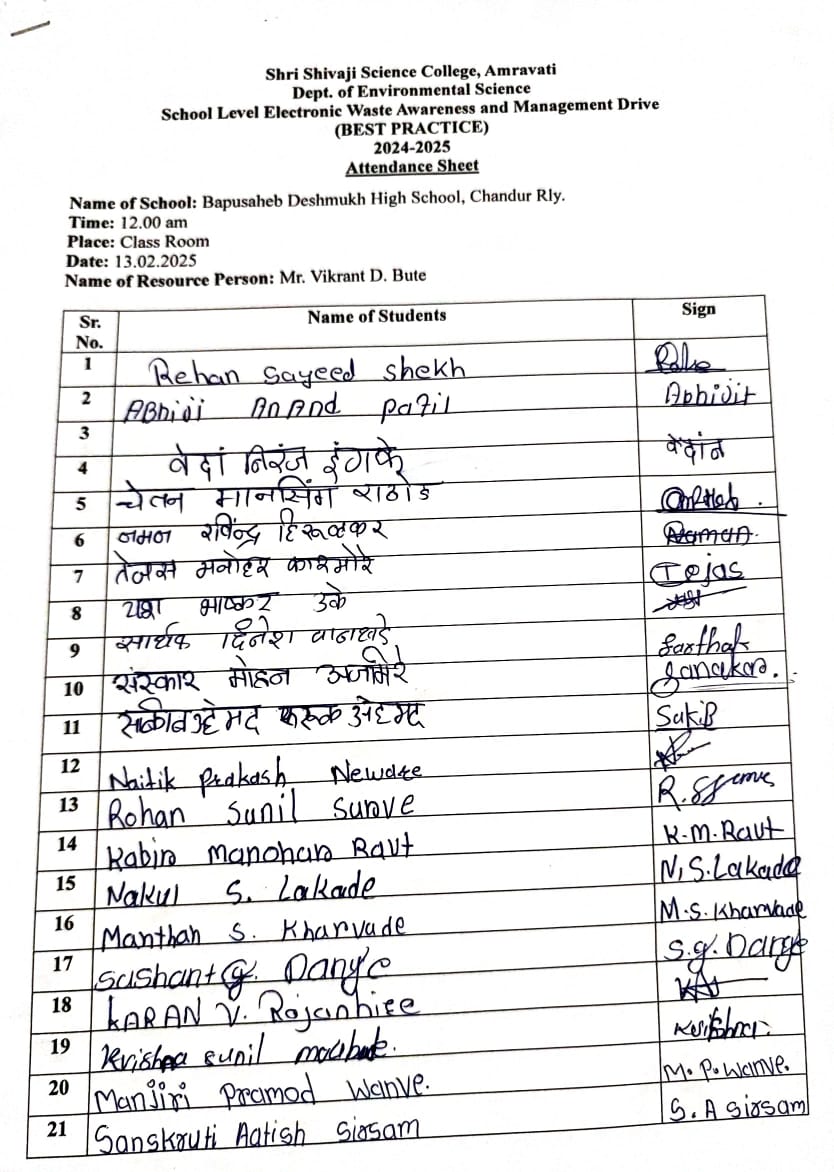 Shri Shivaji Science College, Amravati
Dept. of Environmental Science
School Level Electronic Waste Awareness and Management Drive
(BEST PRACTICE)
2024-2025
Attendance Sheet
Name of School: Bapusaheb Deshmukh High School, Chandur Rly.
Time: 12.00 am
Place: Class Room
Date: 13.02.2025
Name of Resource Person: Mr. Vikrant D. Bute
Sr. No. Name of Students Sign
1 Rehan Sayeed Shekh
2 ABhiji Anand patil Abhijit
3
4 वेदां निरंज इंगळे वेदांन
5 चेतन मानसिंग राठोड
6 नमन रविंन्द्र हिरूळकर Naman.
7 तेजस मनोहर काश्मोरे Tejas
8 यश भाष्कर उके
9 सार्थक दिनेश वानखडे Sarthak
10 संस्कार मोहन अजमिरे
11 अहेमद फारूक अहेमद Sakib
12 Naitik Prakash Neware
13 Rohan Sunil Surve
14 Kabir Manohar Raut K.M.Raut
15 Nakul S. Lakade N.S.Lakade
16 Manthan S. Kharvade M.S. Kharvade
17 Sushant G. Dange S.G. Dange
18 KARAN V.
19 Krishna Sunil Krishna.
20 Manjiri Pramod Wanve. M.P.Wanve.
21 Sanskruti Aatish Sirsam S.A Sirsam